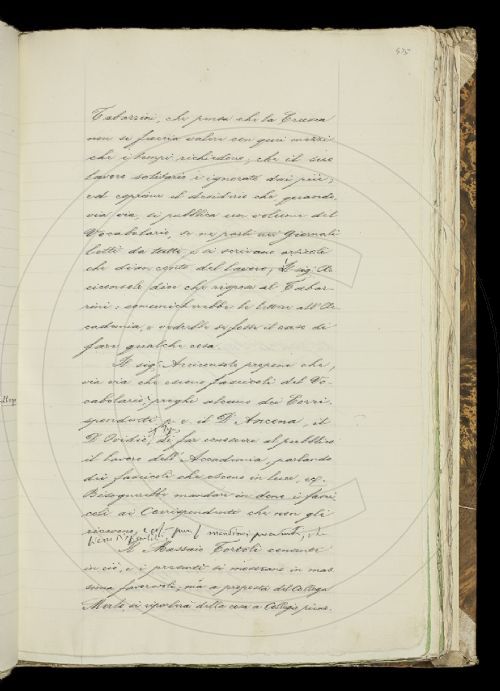 Tabarrini, che pensa che la Crusca
non si faccia valere con quei mezzi
che i tempi richiedono; che il suo
lavoro solitario è ignorato dai più;
ed esprime il desiderio che quando,
via via, si pubblica un volume del
Vocabolario, se ne parli nei Giornali
letti da tutti, e si scrivano articoli
che dieno conto del lavoro; il sig. Ar-
ciconsolo dice che rispose al Tabar-
rini: comunicherebbe la lettera all'Ac-
cademia, e vedrebbe se fosse il caso di
fare qualche cosa.
Il sig. Arciconsolo propone che,
via via che escono fascicoli del Vo-
cabolario, preghi alcuno dei Corri-
spondenti, p. e. il D'Ancona, il
D'Ovidio, di far conoscere al pubblico
il lavoro dell'Accademia, parlando
dei fascicoli che escono in luce,
Bisognerebbe mandare in dono i fasci-
coli ai Corrispondenti che non gli
ricevono,
Il Massaio Tortoli conviene
in ciò, e i presenti si mostrano in mas-
sima favorevoli; ma a proposta del Collega
Merlo si riporterà della cosa a Collegio pieno.